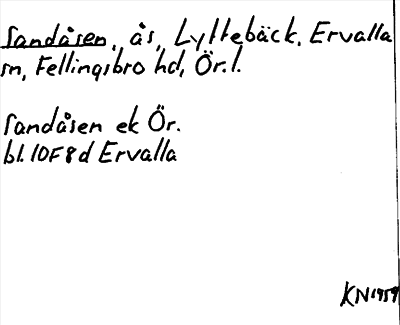 Sandåsen, ås, Lyttebäck, Ervalla
sn, Fellingsbro hd, Ör.l.
Sandåsen ek Ör.
bl. 10F8d Ervalla
KN1959